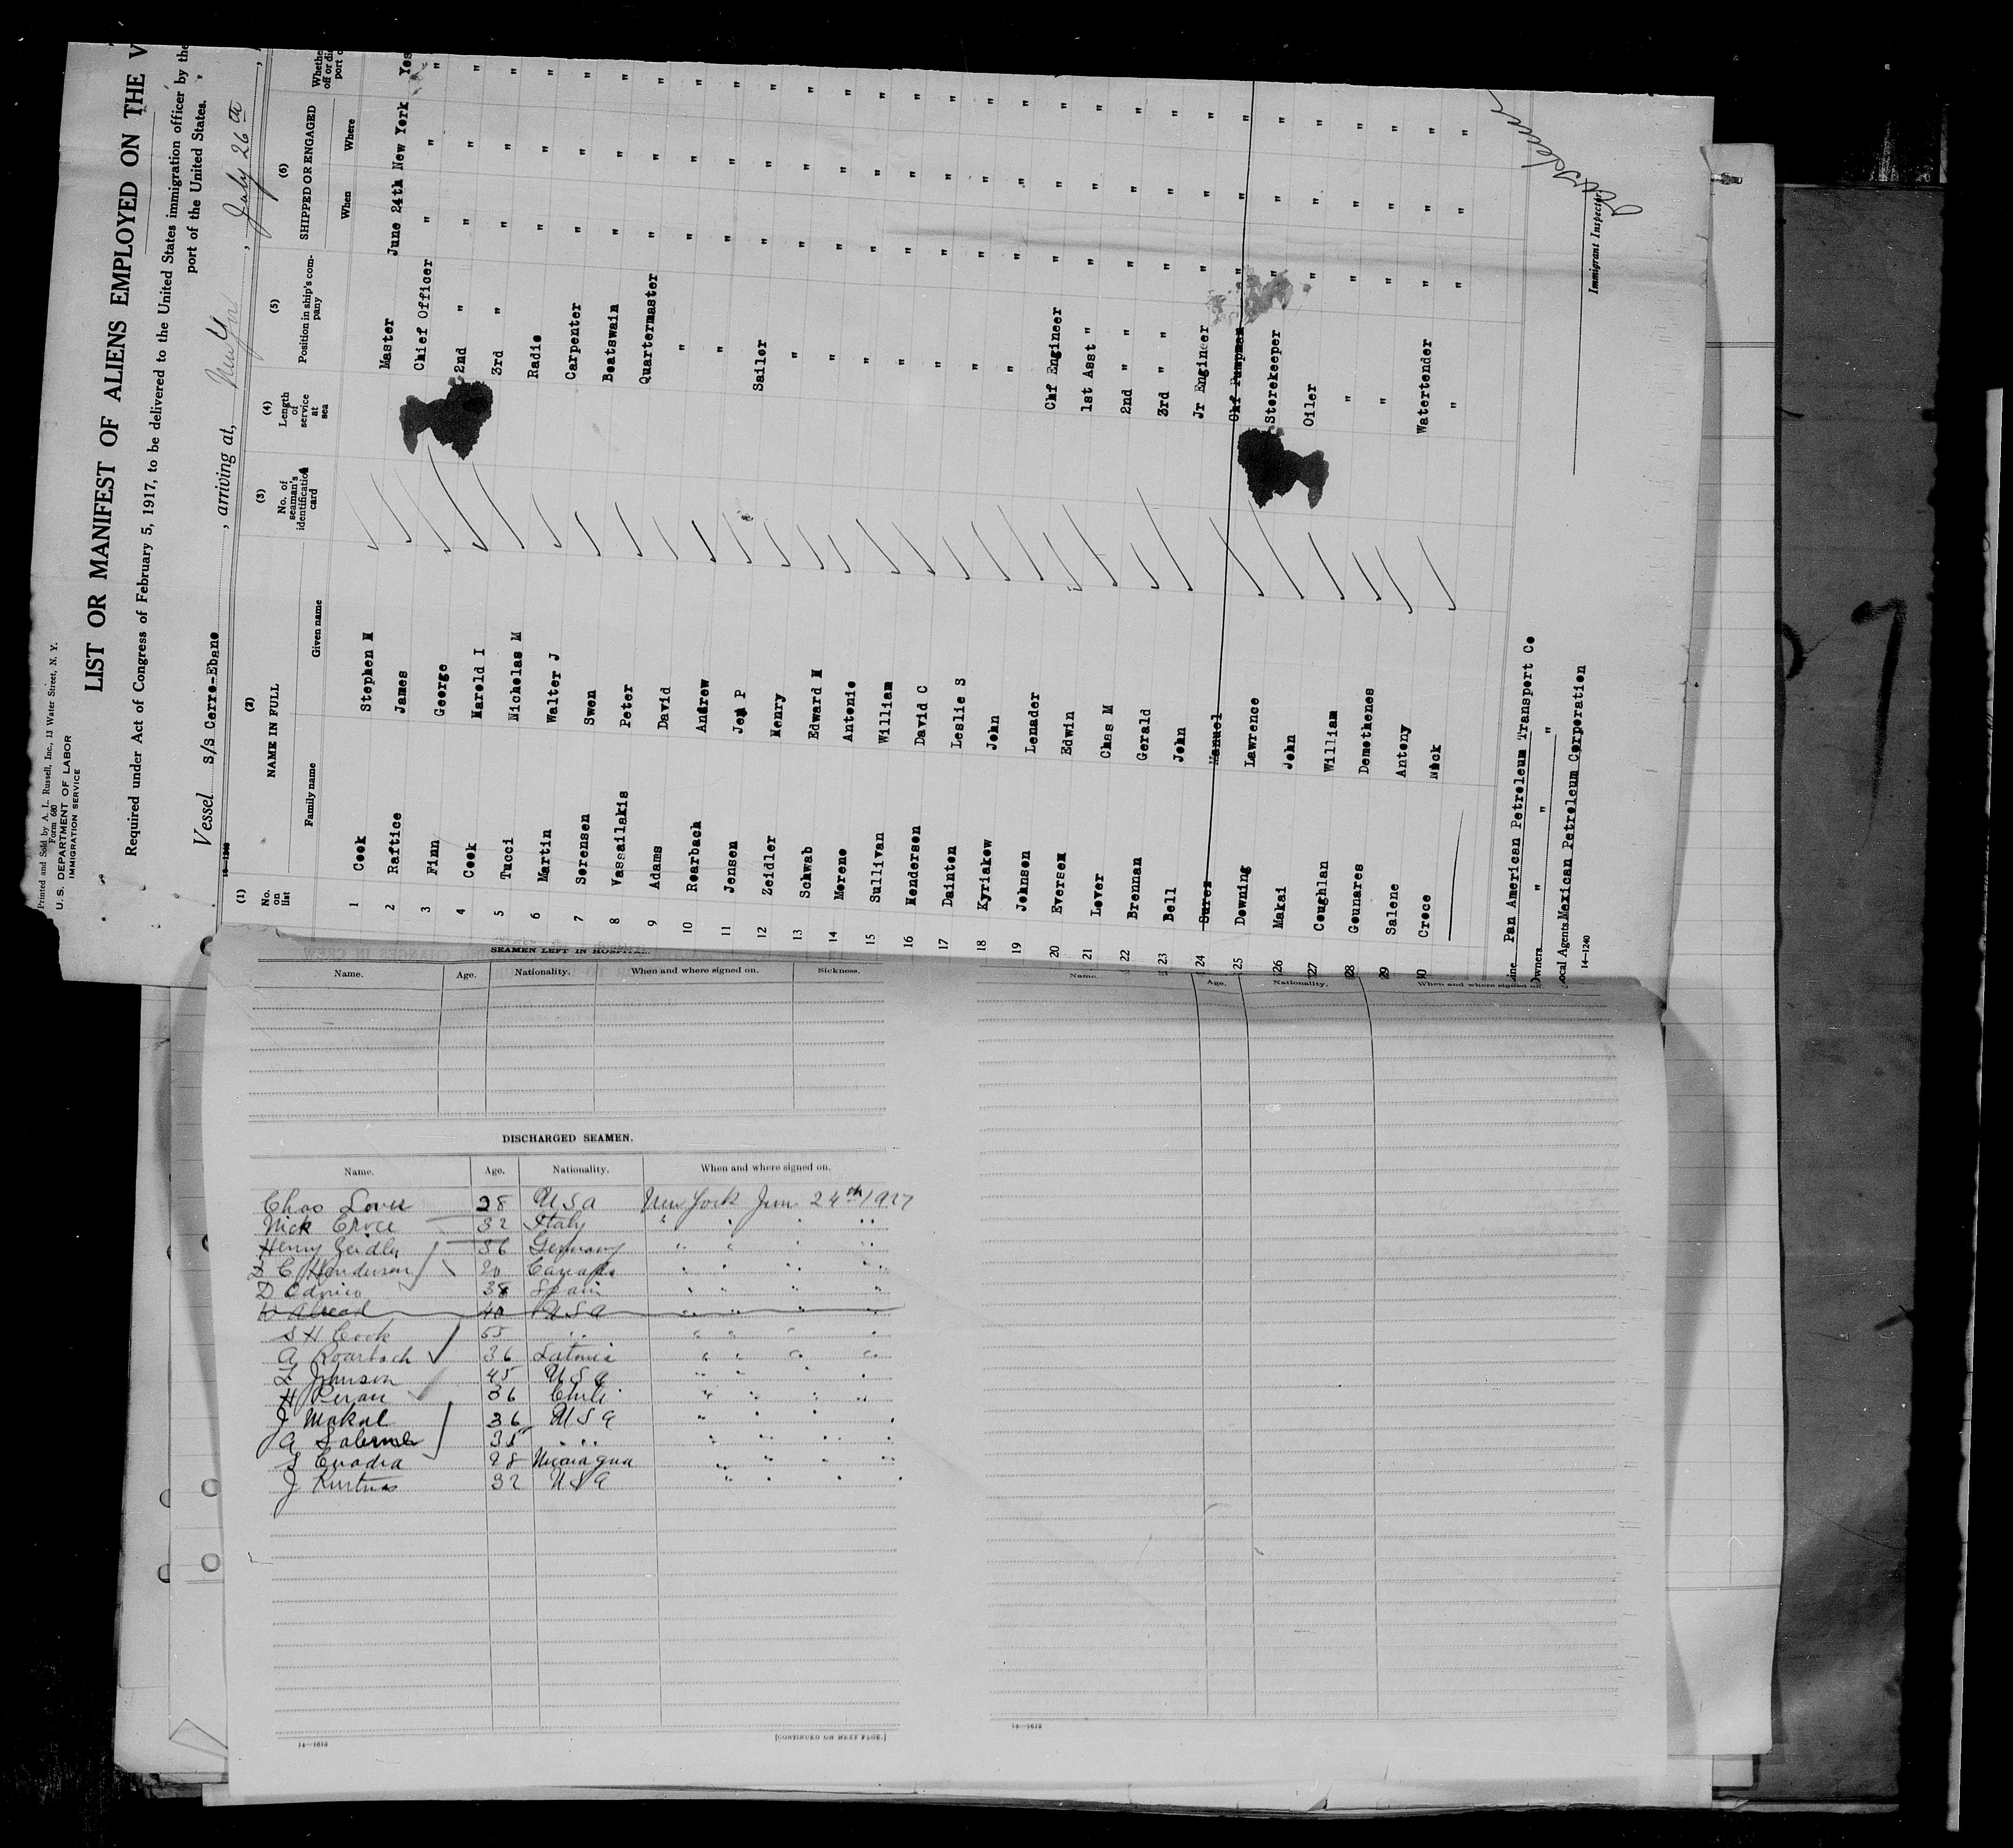 Printed and Sold by A. L. Russell, Inc., 13 Water Street, N. Y.
Form 680
U. S. DEPARTMENT OF LABOR
IMMIGRATION SERVICE
LIST OR MANIFEST OF ALIENS EMPLOYED ON THE V
Required under Act of Congress of February 5, 1917, to be delivered to the United States immigration officer by the
port of the United States.
Vessel S/S Cerro-Ebano, arriving at, New York, July 26th,
(1) (2) (3) (4) (5) (6)
No. on list NAME IN FULL No. of seaman's identification card Length of service at sea Position in ship's company SHIPPED OR ENGAGED
Family name Given name When Where
1 Cook Stephen H Master June 24th New York Yes
2 Raftice James Chief Officer " " "
3 Finn George 2nd " " " "
4 Cook Harold I 3rd " " " "
5 Tucci Nicholas M Radio " " "
6 Martin Walter J Carpenter " " "
7 Sorensen Swen Boatswain " " "
8 Vassailakis Peter Quartermaster " " "
9 Adams David " " " "
10 Roarbach Andrew " " " "
11 Jensen Jen P Sailor " " "
12 Zeidler Henry " " " "
13 Schwab Edward H " " " "
14 Moreno Antonio " " " "
15 Sullivan William " " " "
16 Henderson David C " " " "
17 Dainton Leslie S " " " "
18 Kyriakow John " " " "
19 Johnson Lenader Chf Engineer " " "
20 Eversen Edwin 1st Asst " " " "
21 Lover Chas M 2nd " " " " "
22 Brennan Gerald 3rd " " " " "
23 Bell John Jr Engineer " " "
24 Suren Manuel Chf Pumpman " " "
25 Downing Lawrence Storekeeper " " "
26 Makai John Oiler " " "
27 Coughlan William " " " "
28 Gounares Demothenes " " " "
29 Salene Antony Watertender " " "
30 Croce Nick " " " "
Line Pan American Petroleum Transport Co
Owners " " "
Local Agents Mexican Petroleum Corporation
14—1240
Immigrant Inspector.
SEAMEN LEFT IN HOSPITAL.
Name. Age. Nationality. When and where signed on. Sickness.
Name. Age. Nationality. When and where signed on.
DISCHARGED SEAMEN.
Name. Age. Nationality. When and where signed on.
Chas Lover 28 USA New York Jun. 24th 1927
Nick Croce 32 Italy " " " "
Henry Zeidler 36 Germany " " " "
D C Henderson 20 Canada " " " "
D 38 Spain " " " "
W 40 USA " " " "
S H Cook 55 " " " " " "
A Roarbach 36 Latvia " " " "
L Johnson 45 USA " " "
H 36 Chili " " " "
J Makal 36 USA " " " "
A 35 " " " " " "
S Cuadra 28 Nicaragua " " " "
J 32 USA " " " "
14—1612
[CONTINUED ON NEXT PAGE.]
14—1612